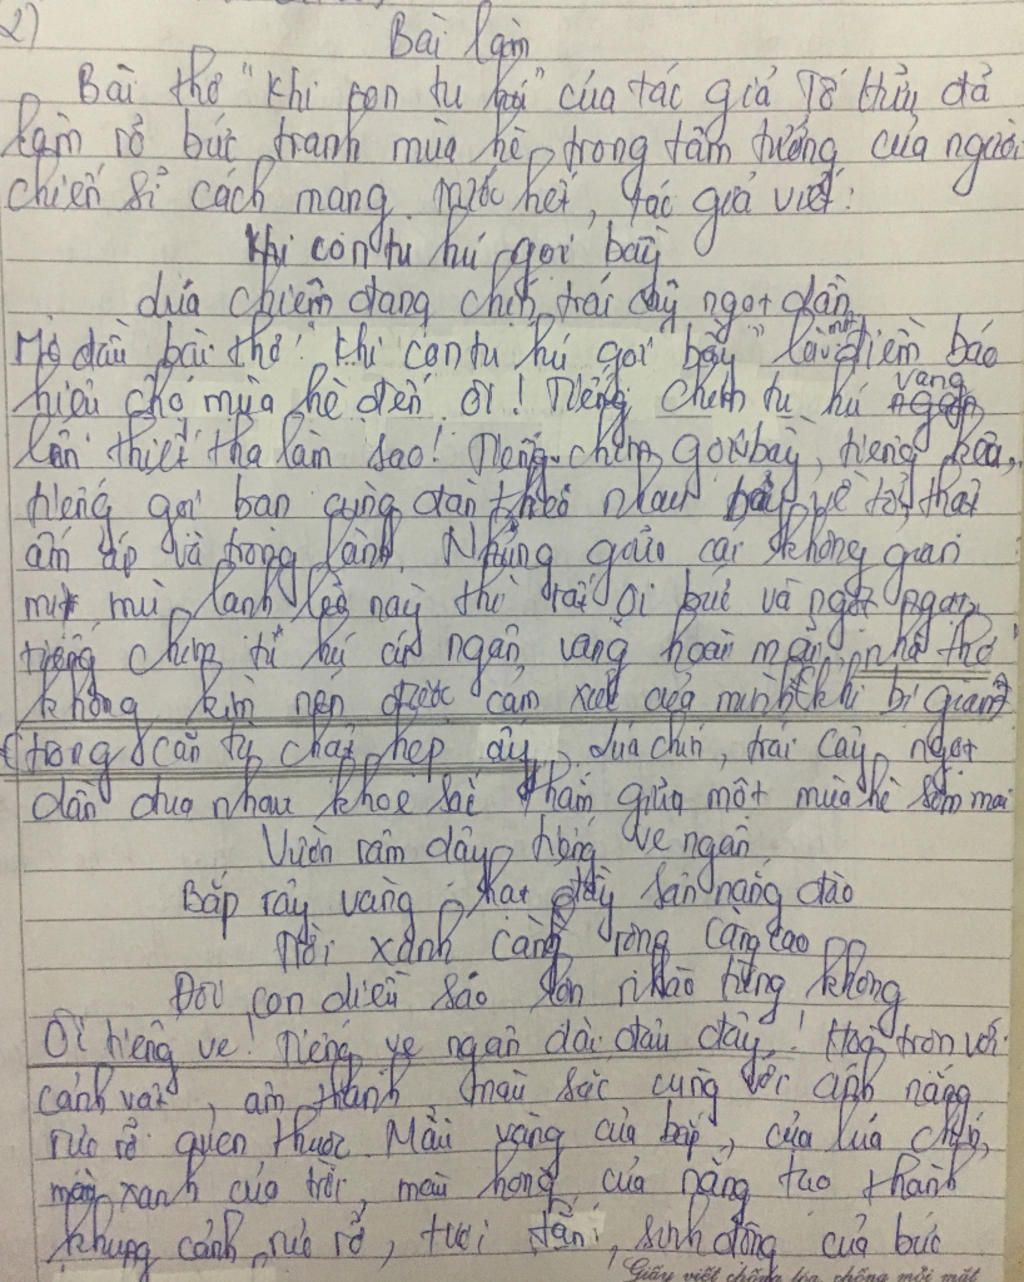 2)
Bài làm
Bài thơ "Khi con tu hú" của tác giả Tố Hữu đã
làm rõ bức tranh mùa hè trong tâm tưởng của người
chiến sĩ cách mạng. Trước hết, tác giả viết:
Khi con tu hú gọi bầy
Lúa chiêm đang chín, trái cây ngọt dần
Mở đầu bài thơ: "Khi con tu hú gọi bầy" là một điềm báo
hiệu cho mùa hè đến. Ôi! Tiếng chim tu hú vang
lên thiết tha làm sao! Tiếng chim gọi bầy, tiếng kêu,
tiếng gọi bạn cùng đàn theo nhau về tổ thật
ấm áp và trong lành. Nhưng giữa cái không gian
mịt mù, lạnh lẽo này thì rất oi bức và ngột ngạt,
tiếng chim tu hú cứ ngân vang hoài mãi, nhà thơ
không kìm nén được cảm xúc của mình khi bị giam
trong căn tù chật hẹp ấy. Lúa chín, trái cây ngọt
dần đua nhau khoe sắc thắm giữa một mùa hè sớm mai
Vườn râm dậy tiếng ve ngân
Bắp rây vàng hạt đầy sân nắng đào
Trời xanh càng rộng càng cao
Đôi con diều sáo lộn nhào từng không
Ôi tiếng ve! Tiếng ve ngân dài đâu đây! Hoà trộn với
cảnh vật, âm thanh, màu sắc cùng với ánh nắng
rực rỡ quen thuộc. Màu vàng của bắp, của lúa chín,
màu xanh của trời, màu hồng của nắng tạo thành
khung cảnh rực rỡ, tươi tắn, sinh động của bức
Giấy viết chống lóa, chống mỏi mắt